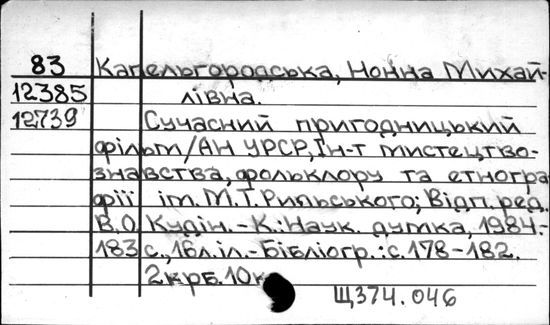 83 Капельгородська, Нонна Михай-
12385 лівна.
12739 Сучасний пригодницький
фільм/АН УРСР, Ін-т мистецтво-
знавства, фольклору та етногра
фії ім. М.Т. Рильського; Відп. ред.
В.О. Кудін. - К.: Наук. думка, 1984.-
183 с., 16 л. іл. - Бібліогр.: с. 178-182.
2 крб. 10 к
Щ374.046